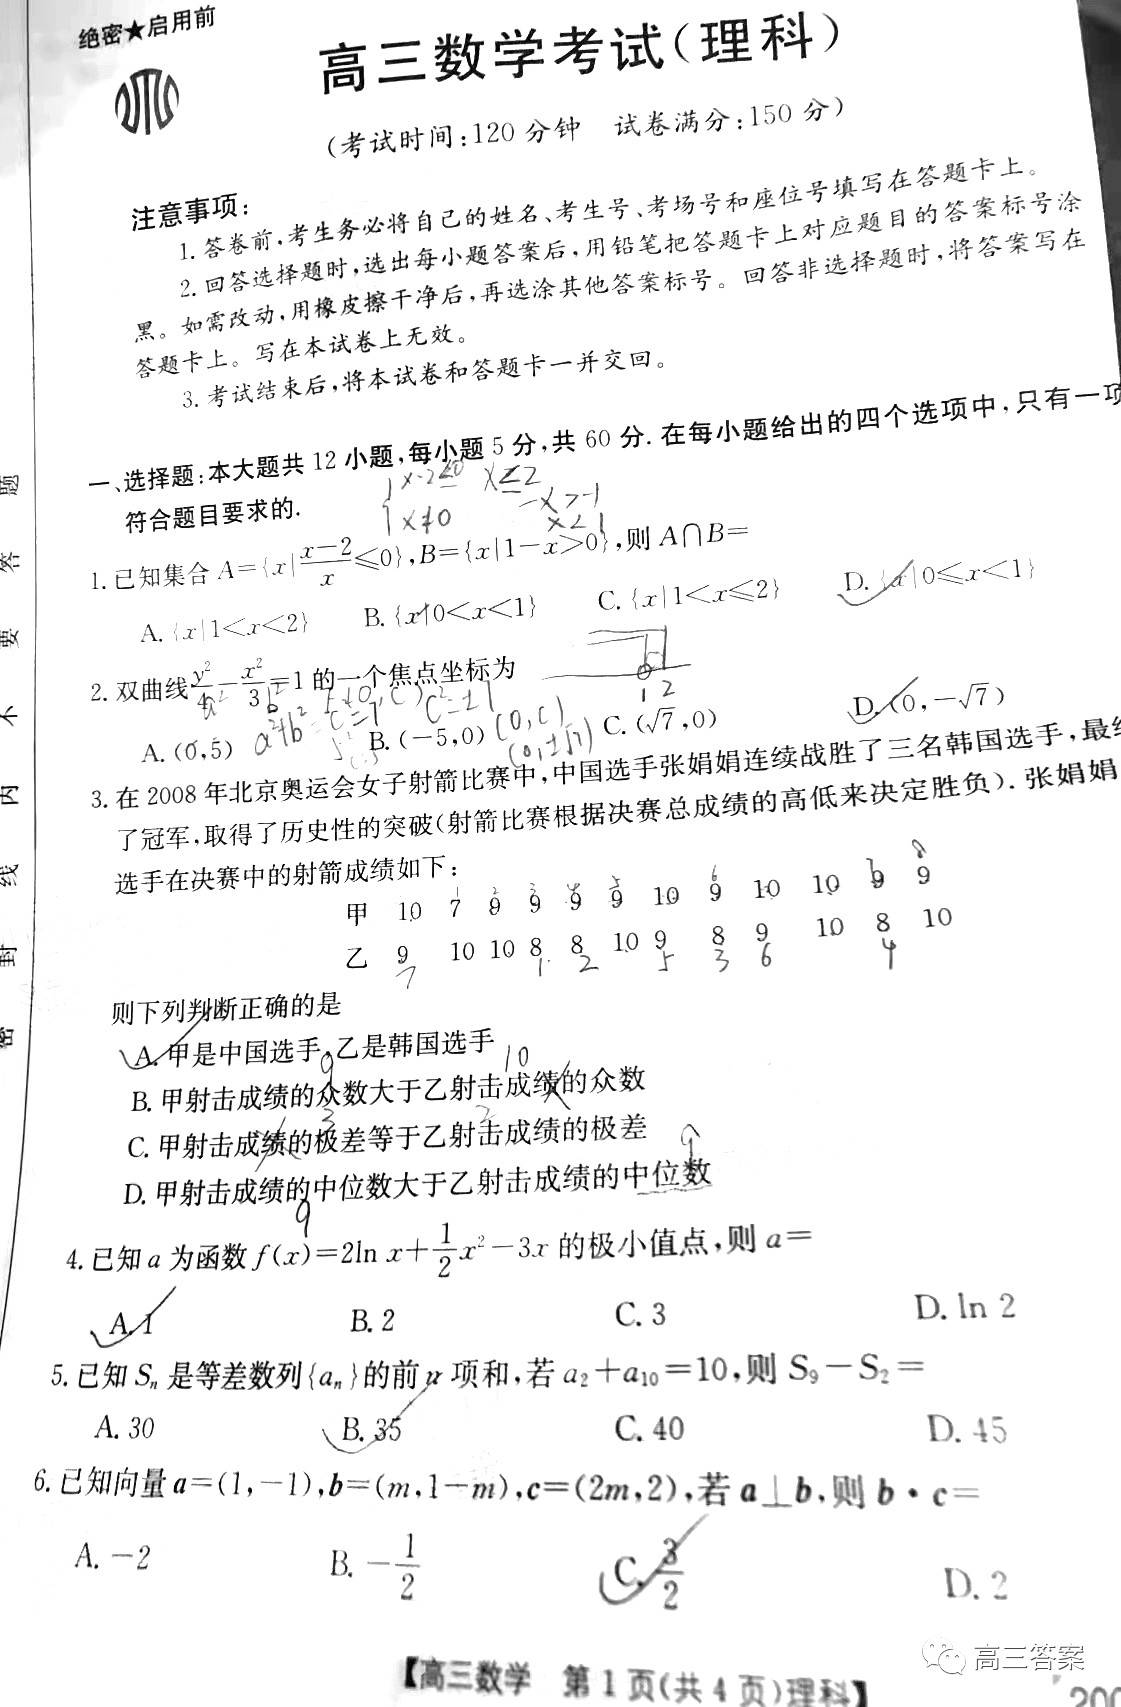 绝密★启用前
高三数学考试(理科)
(考试时间:120分钟 试卷满分:150分)
注意事项:
1.答卷前,考生务必将自己的姓名、考生号、考场号和座位号填写在答题卡上。
2.回答选择题时,选出每小题答案后,用铅笔把答题卡上对应题目的答案标号涂
黑。如需改动,用橡皮擦干净后,再选涂其他答案标号。回答非选择题时,将答案写在
答题卡上。写在本试卷上无效。
3.考试结束后,将本试卷和答题卡一并交回。
一、选择题:本大题共12小题,每小题5分,共60分.在每小题给出的四个选项中,只有一项
符合题目要求的.
x-2≤0 x≤2
x≠0
-x>-1
x<1
1.已知集合A={x|(x-2)/x≤0},B={x|1-x>0},则A∩B=
A.{x|1<x<2} B.{x|0<x<1} C.{x|1<x≤2} D.{x|0≤x<1}
0 1 2
2.双曲线y²/4-x²/3=1的一个焦点坐标为
a² b²
a²+b²=c²=7
(0,c)
(0,±√7)
A.(0,5) B.(-5,0) C.(√7,0) D.(0,-√7)
3.在2008年北京奥运会女子射箭比赛中,中国选手张娟娟连续战胜了三名韩国选手,最终
了冠军,取得了历史性的突破(射箭比赛根据决赛总成绩的高低来决定胜负).张娟娟
选手在决赛中的射箭成绩如下:
1 2 3 4 5 6 7 8
甲 10 7 9 9 9 9 10 9 10 10 9 9
乙 9 10 10 8 8 10 9 8 9 10 8 10
7 1 2 5 3 6 4
则下列判断正确的是
A.甲是中国选手,乙是韩国选手
9 10
B.甲射击成绩的众数大于乙射击成绩的众数
3 2
C.甲射击成绩的极差等于乙射击成绩的极差
9
D.甲射击成绩的中位数大于乙射击成绩的中位数
9
4.已知a为函数f(x)=2ln x+1/2x²-3x的极小值点,则a=
A.1 B.2 C.3 D.ln 2
5.已知Sₙ是等差数列{aₙ}的前n项和,若a₂+a₁₀=10,则S₉-S₂=
A.30 B.35 C.40 D.45
6.已知向量a=(1,-1),b=(m,1-m),c=(2m,2),若a⊥b,则b·c=
A.-2 B.-1/2 C.3/2 D.2
【高三数学 第1页(共4页)理科】
200
高三答案
密 封 线 内 不 要 答 题